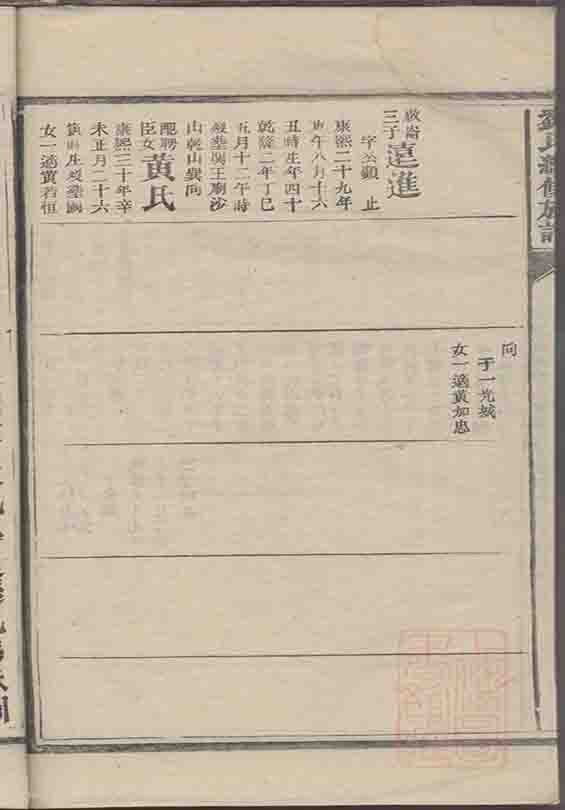 三子遠進
字公顯 止
康熙二十九年
庚午八月十六
丑時生年四十
乾隆二年丁巳
五月十二午時
歿葬與王廟沙
山乾山巽向
配聘臣女黃氏
康熙三十年辛
未正月二十六
寅時生歿葬
女一適黃若恒
向
子一光
女一適黃加忠
氏續修族譜